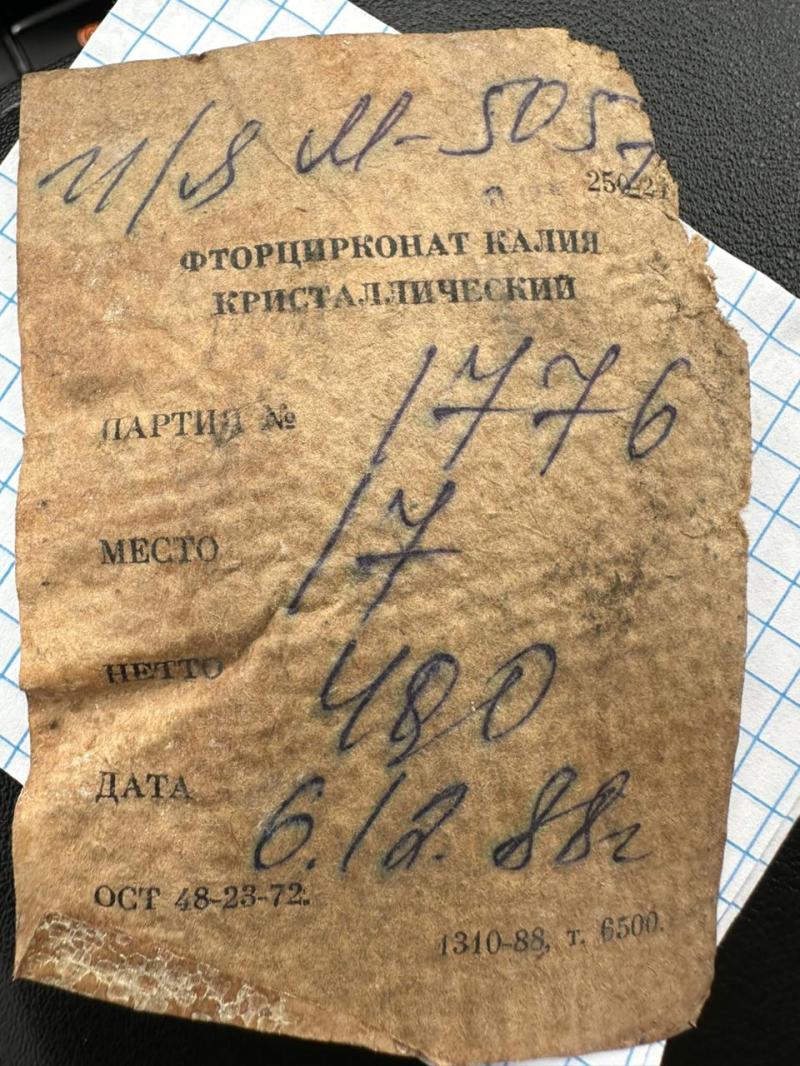 п/я М-5057
250-24
ФТОРЦИРКОНАТ КАЛИЯ
КРИСТАЛЛИЧЕСКИЙ
ПАРТИЯ № 1776
МЕСТО 17
НЕТТО 480
ДАТА 6.12.88г
ОСТ 48-23-72.
1310-88, т. 6500.